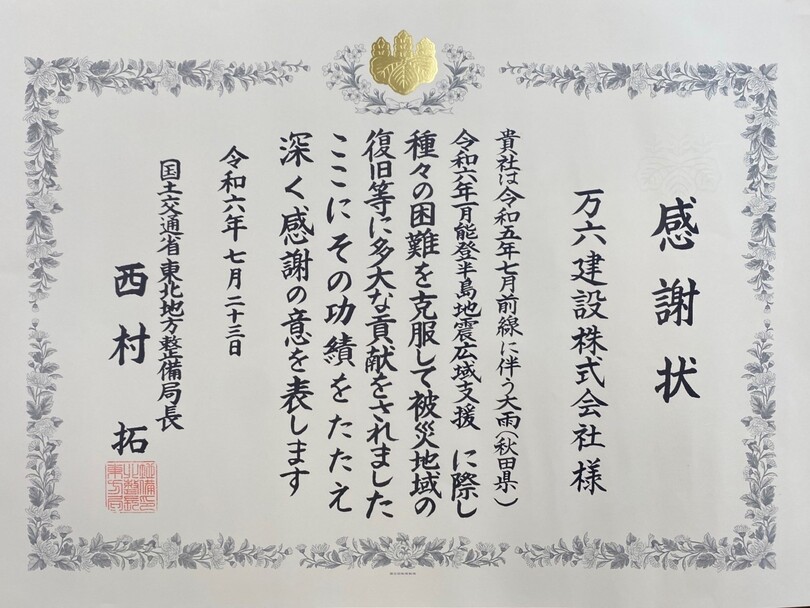 感謝状
万六建設株式会社様
貴社は令和五年七月前線に伴う大雨(秋田県)
令和六年一月能登半島地震広域支援 に際し
種々の困難を克服して被災地域の
復旧等に多大な貢献をされました
ここにその功績をたたえ
深く感謝の意を表します
令和六年七月二十三日
国土交通省東北地方整備局長
西村 拓